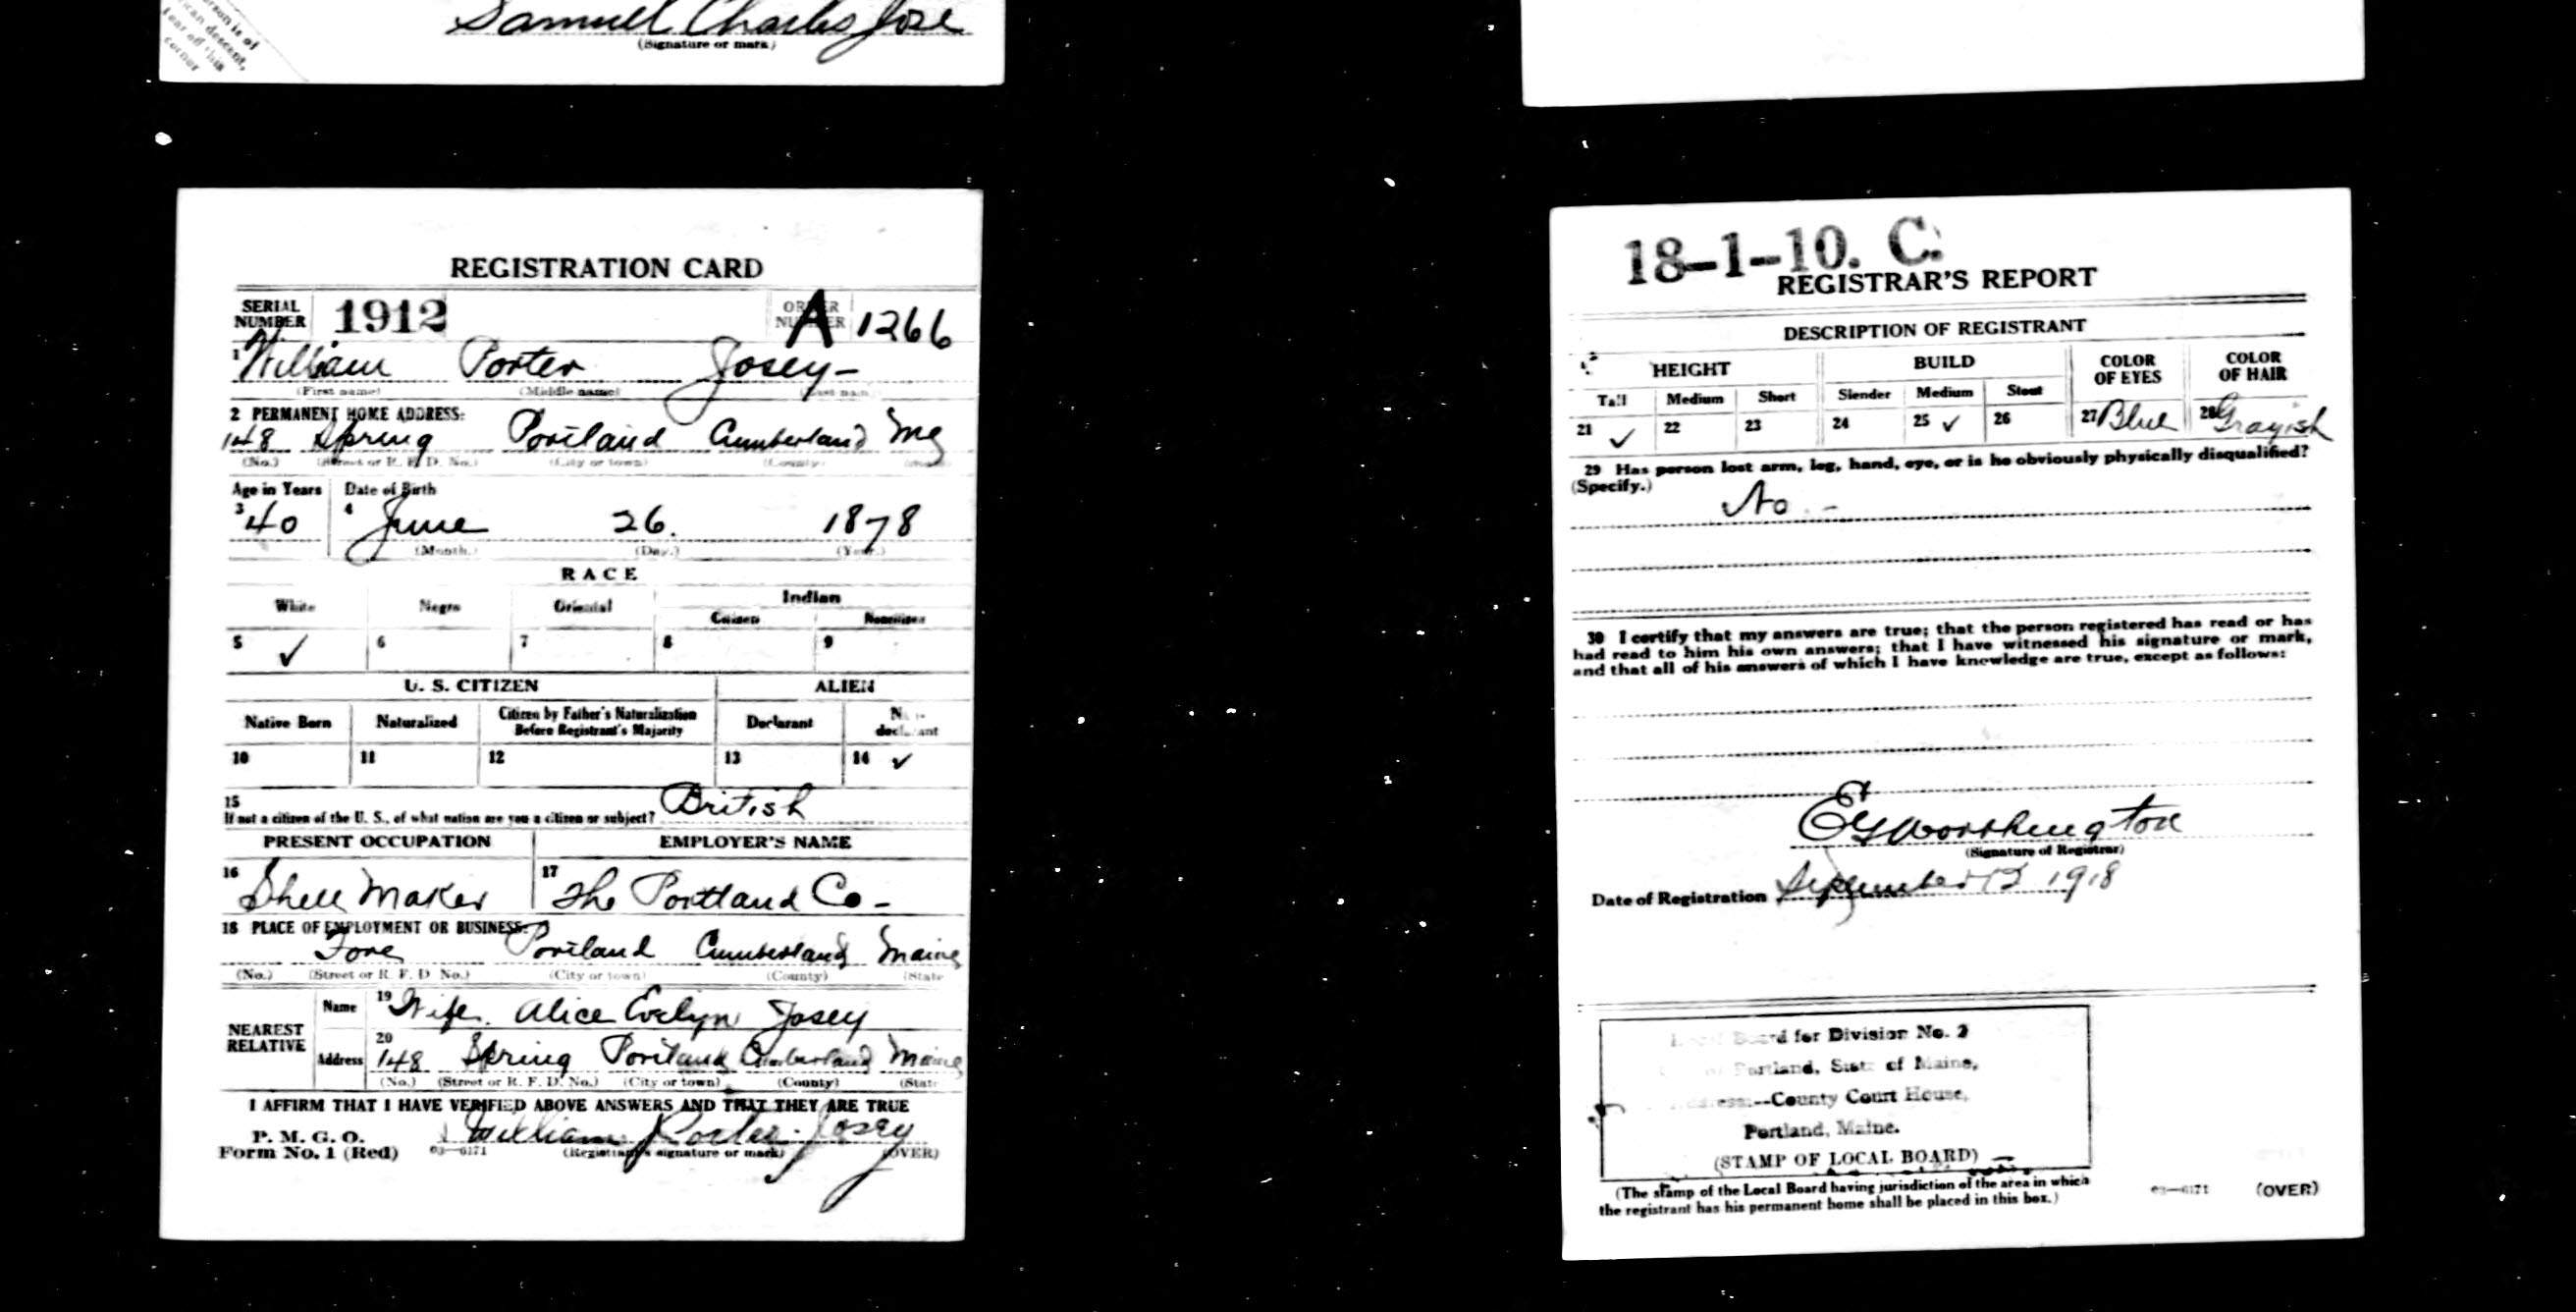 Samuel Charles Jose
(Signature or mark)
person is of
African descent,
tear off this
corner
REGISTRATION CARD
SERIAL NUMBER 1912 ORDER NUMBER A 1266
1 William Porter Josey-
(First name) (Middle name) (Last name)
2 PERMANENT HOME ADDRESS:
148 Spring Portland Cumberland Me
(No.) (Street or R. F. D. No.) (City or town) (County) (State)
Age in Years Date of Birth
3 40 4 June 26. 1878
(Month.) (Day.) (Year.)
RACE
White Negro Oriental Indian
Citizen Noncitizen
5 ✓ 6 7 8 9
U. S. CITIZEN ALIEN
Native Born Naturalized Citizen by Father's Naturalization Before Registrant's Majority Declarant Non-declarant
10 11 12 13 14 ✓
15 If not a citizen of the U. S., of what nation are you a citizen or subject? British
PRESENT OCCUPATION EMPLOYER'S NAME
16 Shell Maker 17 The Portland Co-
18 PLACE OF EMPLOYMENT OR BUSINESS:
Fore Portland Cumberland Maine
(No.) (Street or R. F. D. No.) (City or town) (County) (State
NEAREST RELATIVE
Name 19 Wife. Alice Evelyn Josey
Address 20 148 Spring Portland Cumberland Maine
(No.) (Street or R. F. D. No.) (City or town) (County) (State
I AFFIRM THAT I HAVE VERIFIED ABOVE ANSWERS AND THAT THEY ARE TRUE
P. M. G. O.
Form No. 1 (Red) 03—6171 William Porter Josey
(Registrant's signature or mark) (OVER)
18-1-10. C.
REGISTRAR'S REPORT
DESCRIPTION OF REGISTRANT
HEIGHT BUILD COLOR OF EYES COLOR OF HAIR
Tall Medium Short Slender Medium Stout
21 ✓ 22 23 24 25 ✓ 26 27 Blue 28 Grayish
29 Has person lost arm, leg, hand, eye, or is he obviously physically disqualified?
(Specify.) No.-
30 I certify that my answers are true; that the person registered has read or has
had read to him his own answers; that I have witnessed his signature or mark,
and that all of his answers of which I have knowledge are true, except as follows:
Worthington
(Signature of Registrar)
Date of Registration September 12 1918
Local Board for Division No. 2
Portland, State of Maine,
Address:--County Court House,
Portland, Maine.
(STAMP OF LOCAL BOARD)
(The stamp of the Local Board having jurisdiction of the area in which
the registrant has his permanent home shall be placed in this box.)
03—6171 (OVER)